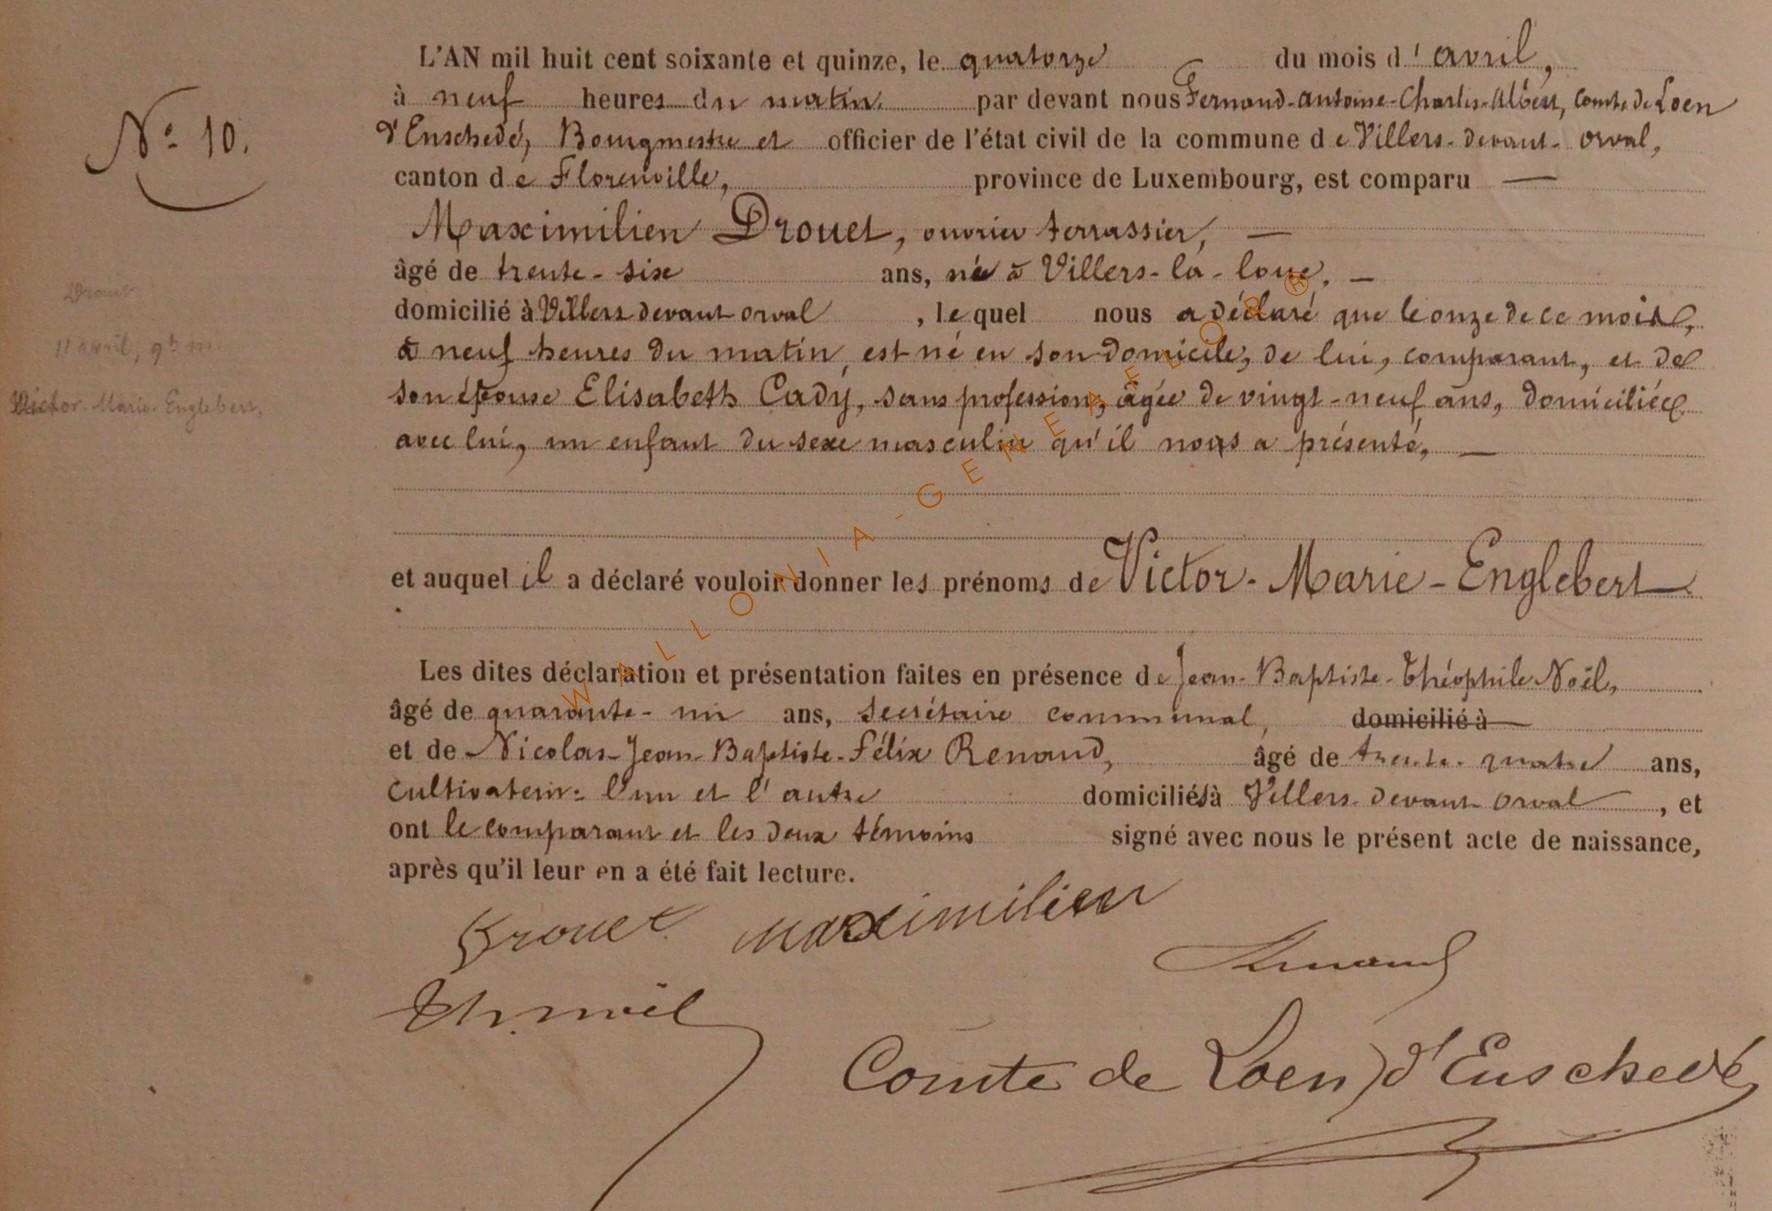 L'AN mil huit cent soixante et quinze, le quatorze du mois d'avril,
à neuf heures du matin, par devant nous Fernand-Antoine-Charles-Albert, Comte de Loen
d'Enschedé, Bourgmestre et officier de l'état civil de la commune de Villers-devant-orval,
N° 10.
canton de Florenville, province de Luxembourg, est comparu —
Maximilien Drouet, ouvrier terrassier, —
âgé de trente-six ans, né à Villers-la-loue. —
Drouet
domicilié à Villers devant orval, lequel nous a déclaré que le onze de ce mois,
11 avril, 9h m.
à neuf heures du matin, est né en son domicile, de lui, comparant, et de
son épouse Elisabeth Cady, sans profession, âgée de vingt-neuf ans, domiciliée
Victor-Marie-Englebert,
avec lui, un enfant du sexe masculin qu'il nous a présenté, —
et auquel il a déclaré vouloir donner les prénoms de Victor-Marie-Englebert
Les dites déclaration et présentation faites en présence de Jean-Baptiste-Théophile Noël,
âgé de quarante-un ans, secrétaire communal, domicilié à
et de Nicolas-Jean-Baptiste-Félix Renaud, âgé de trente-quatre ans,
cultivateur: l'un et l'autre domiciliés à Villers-devant-orval, et
ont le comparant et les deux témoins signé avec nous le présent acte de naissance,
après qu'il leur en a été fait lecture.
Drouet Maximilien
Renaud
Th. Noël
Comte de Loen d'Enschedé
WALLONIA-GENEALOR®